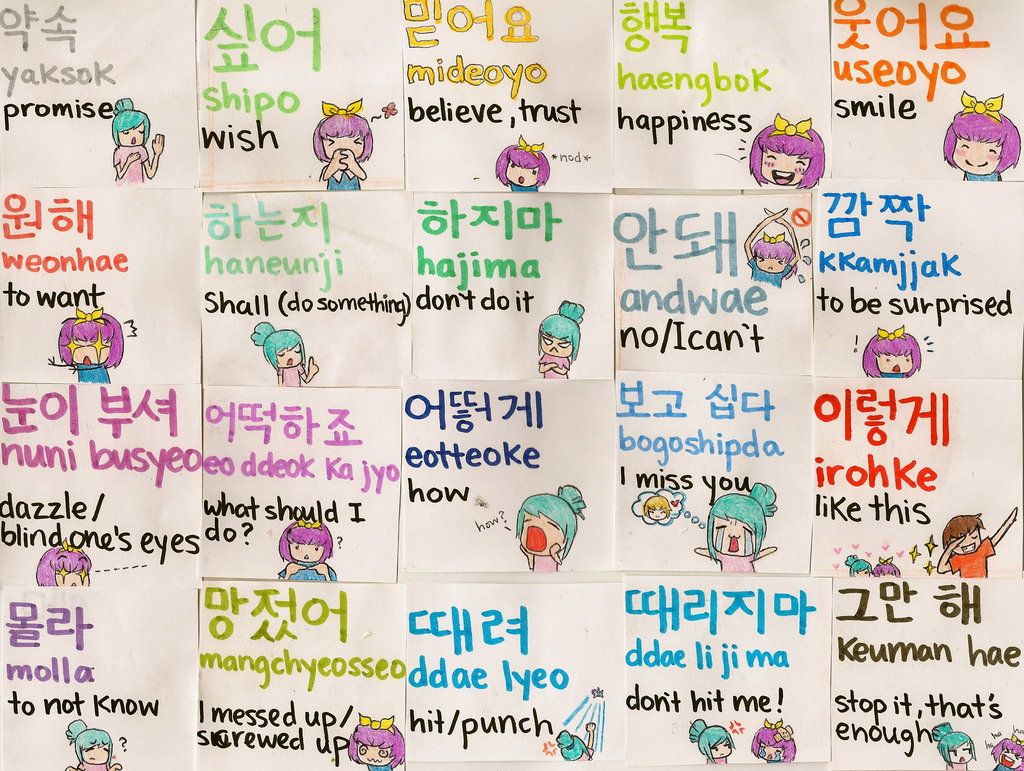 약속
yaksok
promise
싶어
shipo
wish
믿어요
mideoyo
believe, trust
*nod*
행복
haengbok
happiness
웃어요
useoyo
smile
원해
weonhae
to want
하는지
haneunji
Shall (do something)
하지마
hajima
don't do it
안돼
andwae
no/I can't
깜짝
kkamjjak
to be surprised
!
눈이 부셔
nuni busyeo
dazzle/
blind one's eyes
어떡하죠
eo ddeok ka jyo
what should I
do?
?
어떻게
eotteoke
how
how?
보고 십다
bogoshipda
I miss you
이렇게
irohke
like this
몰라
molla
to not know
?
망졌어
mangchyeosseo
I messed up/
screwed up
때려
ddae lyeo
hit/punch
때리지마
ddae li ji ma
don't hit me!
그만 해
Keuman hae
stop it, that's
enough
ha ha ha